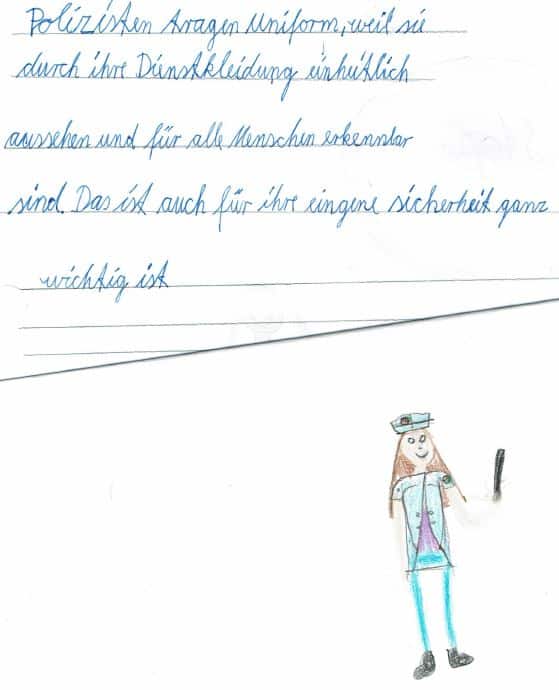 Polizisten tragen Uniform, weil sie
durch ihre Dienstkleidung einheitlich
aussehen und für alle Menschen erkennbar
sind. Das ist auch für ihre eingene sicherheit ganz
wichtig ist